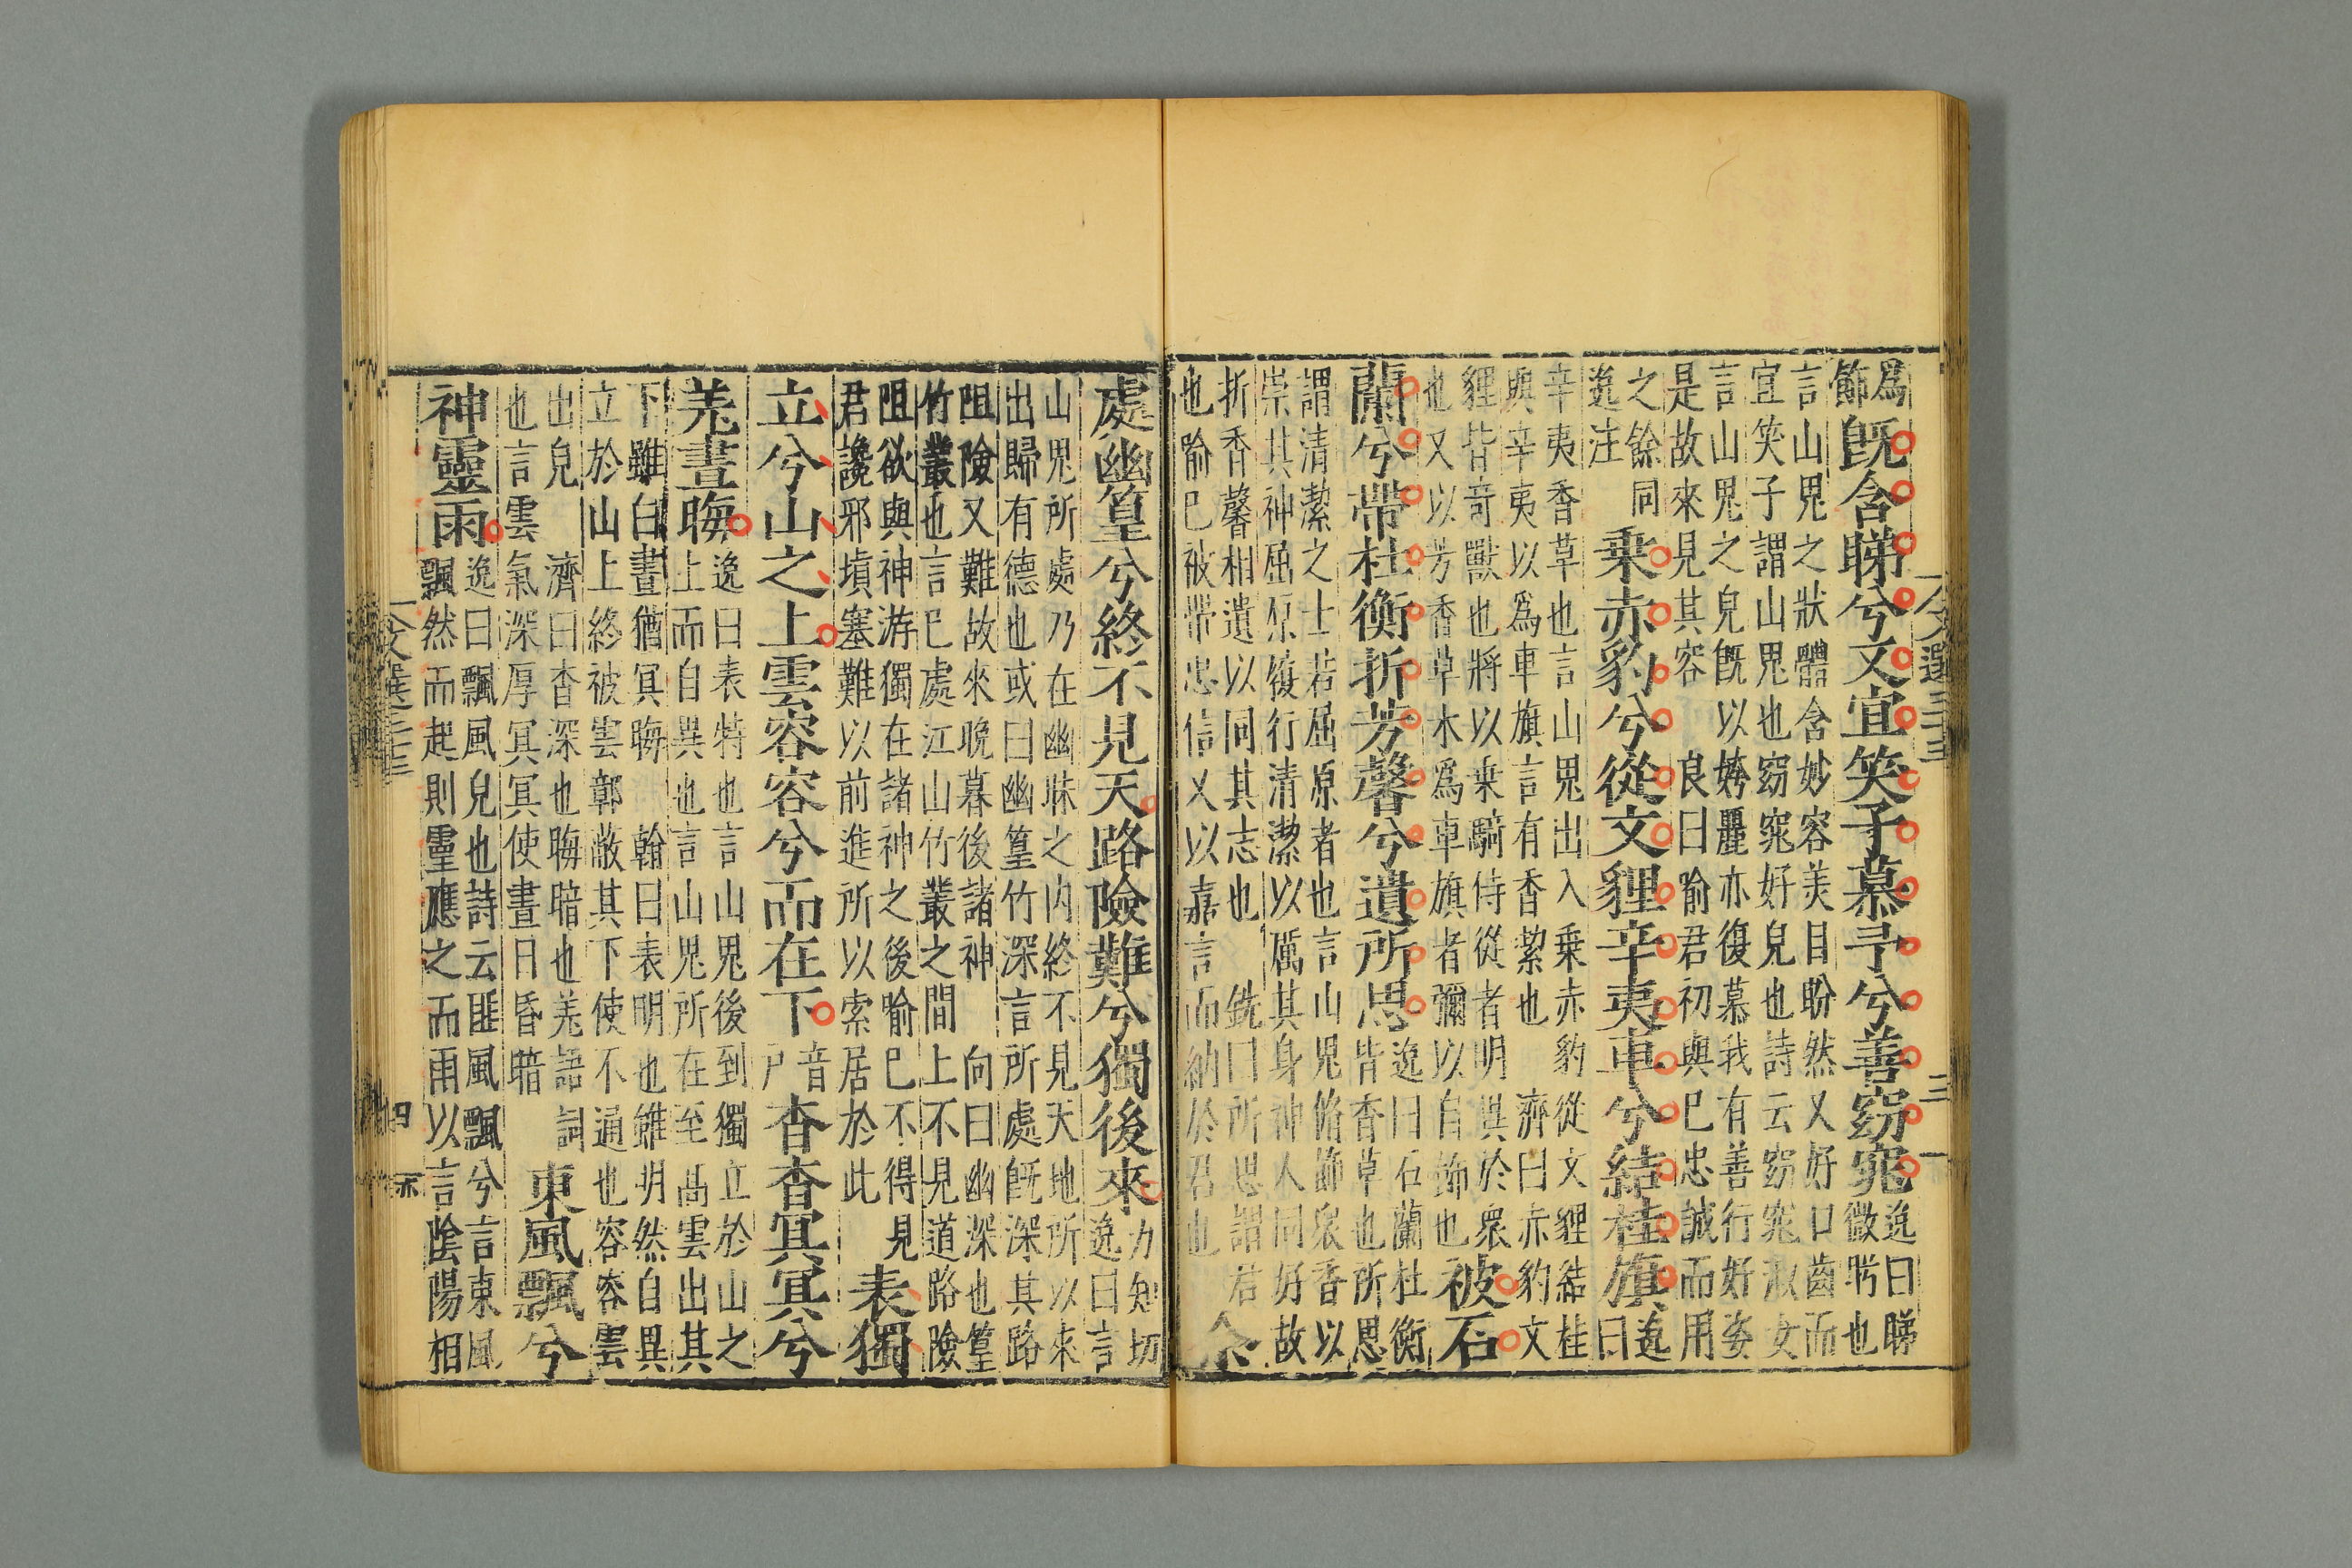 爲
節
既含睇兮又宜笑子慕予兮善窈窕
逸曰睇
微眄也
言山鬼之狀體含妙容美目盼然又好口齒而
宜笑子謂山鬼也窈窕好皃也詩云窈窕淑女
言山鬼之皃既以姱麗亦復慕我有善行好姿
是故來見其容 良曰喻君初與巳忠誠而用
之餘同
逸注
乗赤豹兮從文貍辛夷車兮結桂旗
逸
曰
辛夷香草也言山鬼出入乗赤豹從文貍結桂
與辛夷以爲車旗言有香絜也 濟曰赤豹文
貍皆奇獸也將以乗騎侍從者明異於衆
也又以芳香草木爲車旗者彌以自飾也
被石
蘭兮帶杜衡折芳馨兮遺所思
逸曰石蘭杜衡
皆香草也所思
謂清潔之士若屈原者也言山鬼脩飾衆香以
崇其神屈原履行清潔以厲其身神人同好故
折香馨相遺以同其志也 銑曰所思謂君
也喻巳被帶忠信又以嘉言而納於君也
余
處幽篁兮終不見天路險難兮獨後來
力知切
逸曰言
山鬼所處乃在幽昧之内終不見天地所以來
出歸有德也或曰幽篁竹深言所處既深其路
阻險又難故來晚暮後諸神 向曰幽深也篁
竹叢也言巳處江山竹叢之間上不見道路險
阻欲與神游獨在諸神之後喻巳不得見
君讒邪塡塞難以前進所以索居於此
表獨
立兮山之上雲容容兮而在下
音
戸
杳杳冥冥兮
羌晝晦
逸曰表特也言山鬼後到獨立於山之
上而自異也言山鬼所在至高雲出其
下雖白晝猶冥晦 翰曰表明也雖明然自異
立於山上終被雲鄣蔽其下使不通也容容雲
出皃 濟曰杳深也晦暗也羌語詞
也言雲氣深厚冥冥使晝日昏暗
東風飄兮
神靈雨
逸曰飄風皃也詩云匪風飄兮言東風
飄然而起則靈應之而雨以言陰陽相
文選三十三
三
四